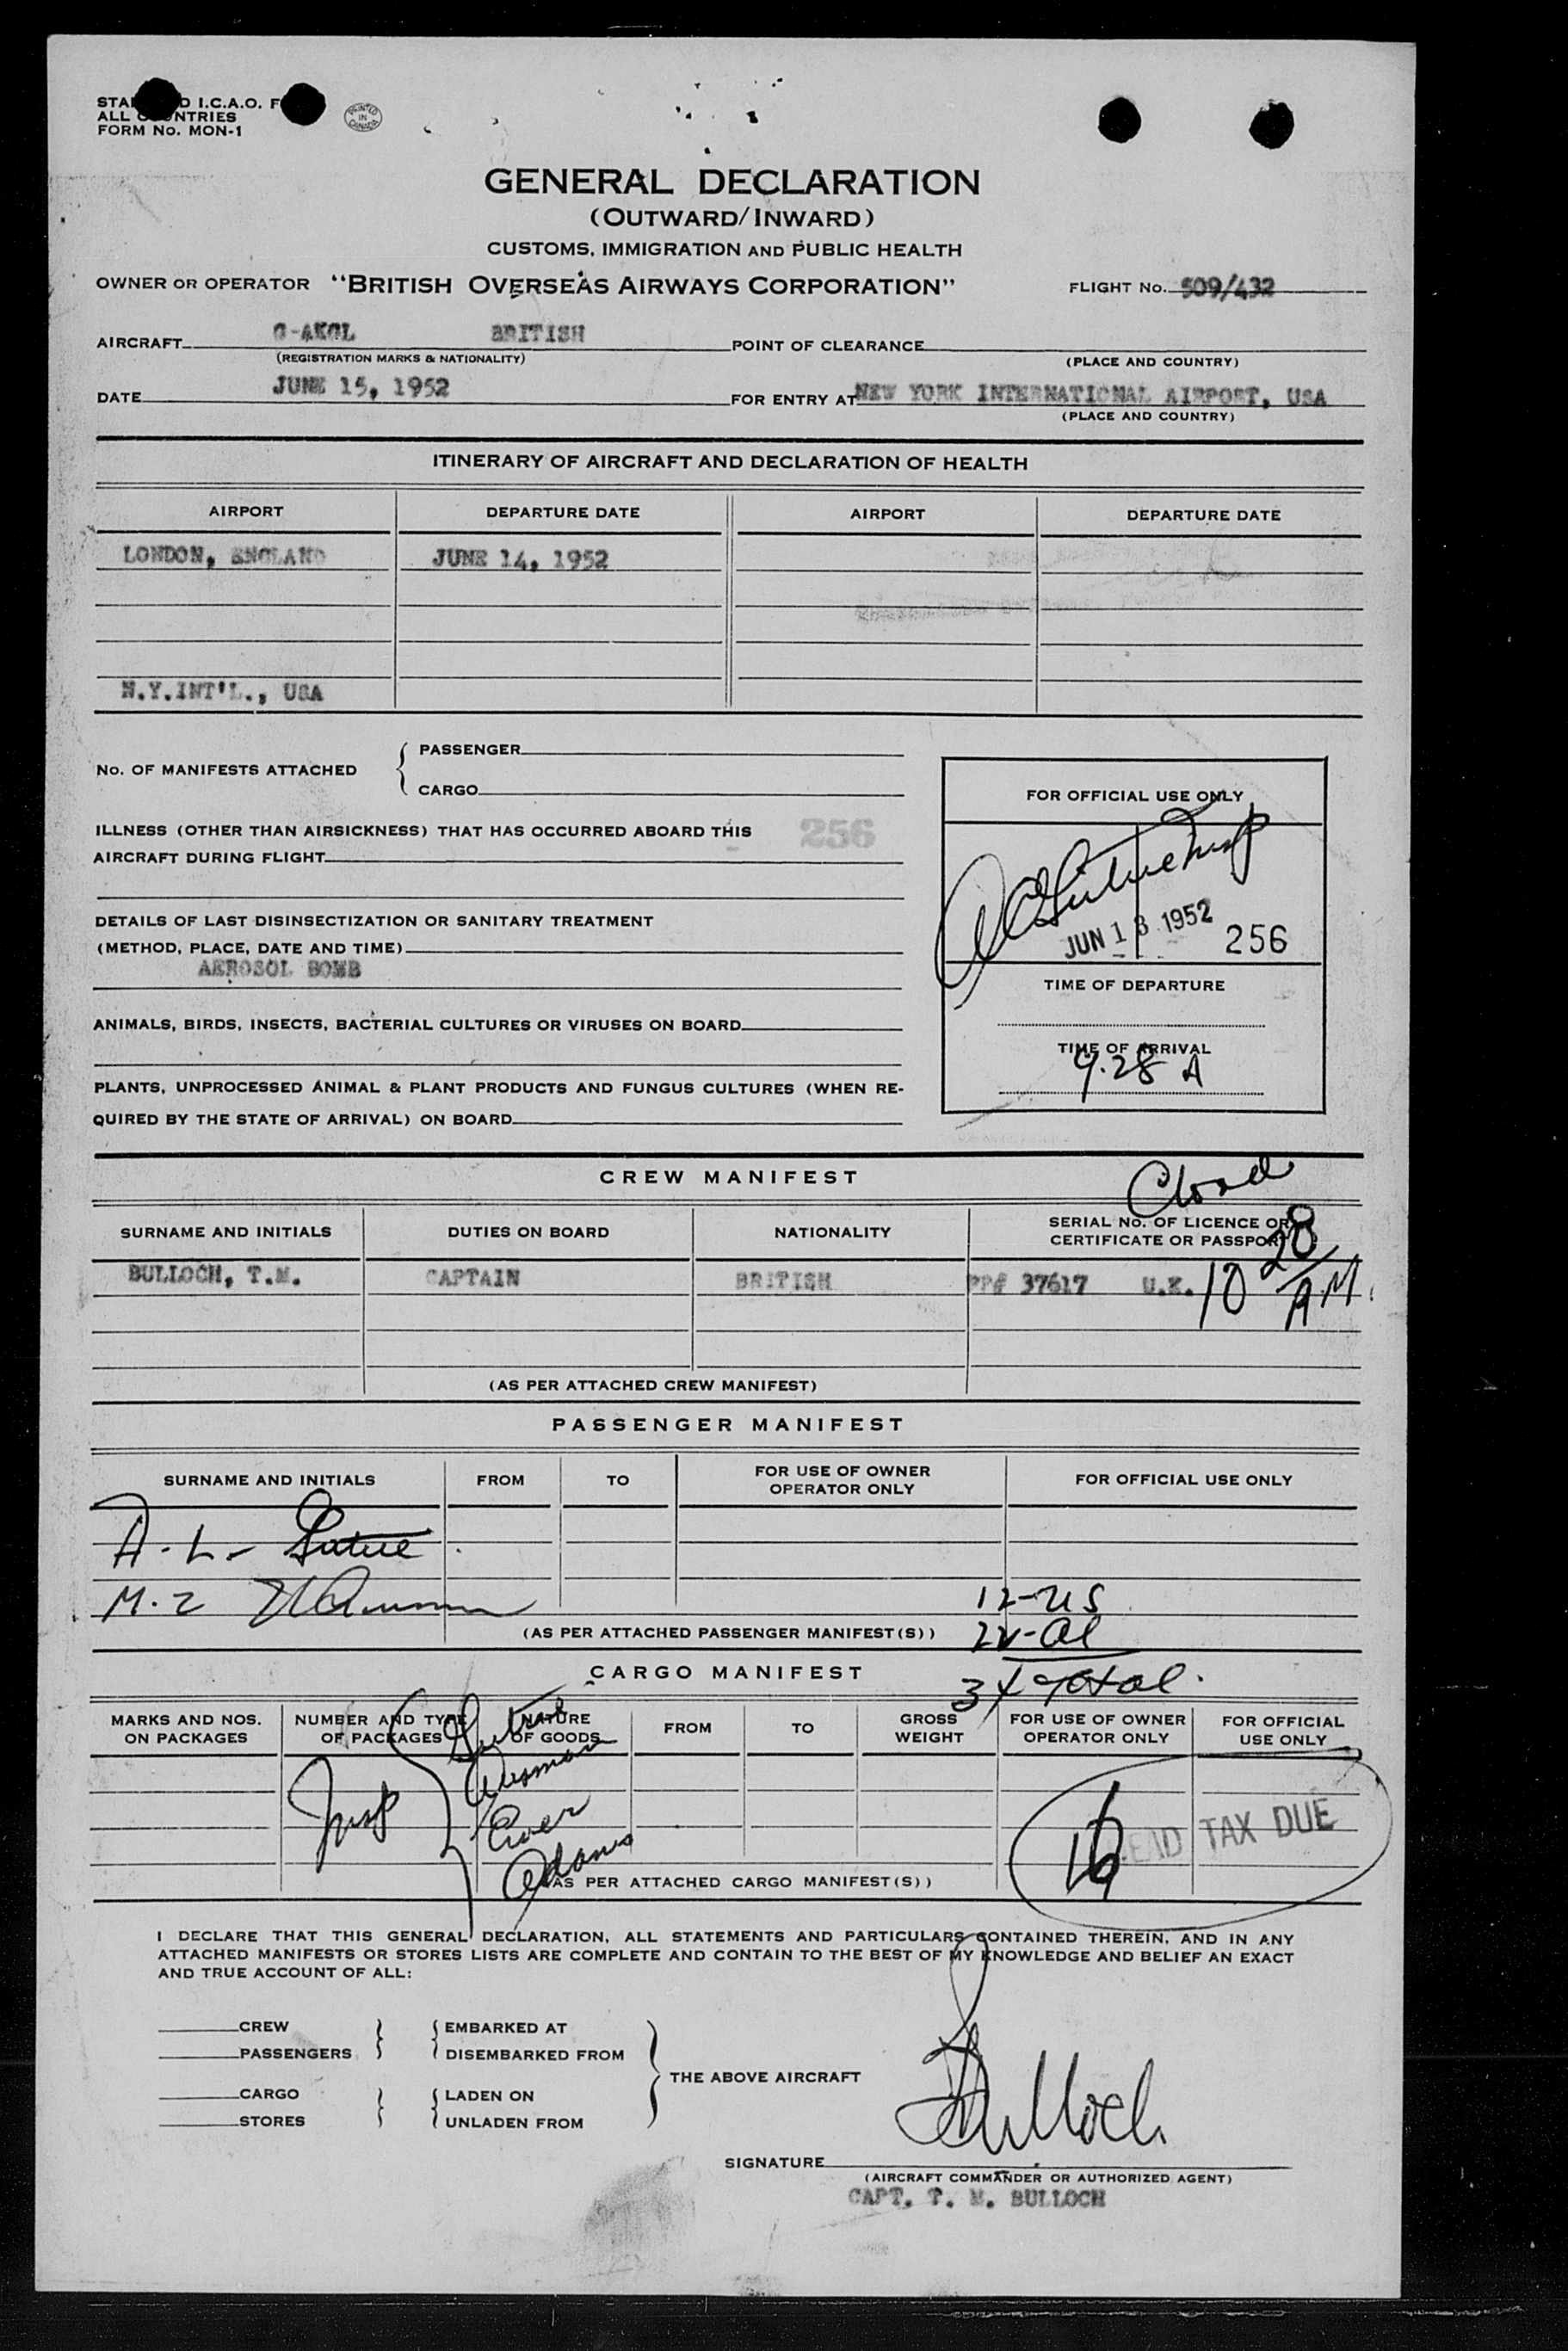 STA D I.C.A.O. F
ALL COUNTRIES
FORM No. MON-1
PRINTED IN CANADA
GENERAL DECLARATION
(OUTWARD/INWARD)
CUSTOMS, IMMIGRATION AND PUBLIC HEALTH
OWNER OR OPERATOR "BRITISH OVERSEAS AIRWAYS CORPORATION" FLIGHT No. 509/432
AIRCRAFT G-AKGL BRITISH POINT OF CLEARANCE
(REGISTRATION MARKS & NATIONALITY) (PLACE AND COUNTRY)
DATE JUNE 15, 1952 FOR ENTRY AT NEW YORK INTERNATIONAL AIRPORT, USA
(PLACE AND COUNTRY)
ITINERARY OF AIRCRAFT AND DECLARATION OF HEALTH
AIRPORT DEPARTURE DATE AIRPORT DEPARTURE DATE
LONDON, ENGLAND JUNE 14, 1952
N.Y.INT'L., USA
No. OF MANIFESTS ATTACHED { PASSENGER
CARGO
ILLNESS (OTHER THAN AIRSICKNESS) THAT HAS OCCURRED ABOARD THIS 256
AIRCRAFT DURING FLIGHT
DETAILS OF LAST DISINSECTIZATION OR SANITARY TREATMENT
(METHOD, PLACE, DATE AND TIME)
AEROSOL BOMB
ANIMALS, BIRDS, INSECTS, BACTERIAL CULTURES OR VIRUSES ON BOARD
PLANTS, UNPROCESSED ANIMAL & PLANT PRODUCTS AND FUNGUS CULTURES (WHEN RE-
QUIRED BY THE STATE OF ARRIVAL) ON BOARD
FOR OFFICIAL USE ONLY
JUN 1 1952 256
TIME OF DEPARTURE
TIME OF ARRIVAL
9.28 A
CREW MANIFEST
Closed
SURNAME AND INITIALS DUTIES ON BOARD NATIONALITY SERIAL No. OF LICENCE OR
CERTIFICATE OR PASSPORT
BULLOCH, T.M. CAPTAIN BRITISH PP# 37617 U.K. 10 28/AM.
(AS PER ATTACHED CREW MANIFEST)
PASSENGER MANIFEST
SURNAME AND INITIALS FROM TO FOR USE OF OWNER
OPERATOR ONLY FOR OFFICIAL USE ONLY
A. L.
M. Z
12-US
(AS PER ATTACHED PASSENGER MANIFEST(S)) 22-Al
CARGO MANIFEST 34 Total.
MARKS AND NOS.
ON PACKAGES NUMBER AND TYPE
OF PACKAGES NATURE
OF GOODS FROM TO GROSS
WEIGHT FOR USE OF OWNER
OPERATOR ONLY FOR OFFICIAL
USE ONLY
Insp {
Adams
16 HEAD TAX DUE
(AS PER ATTACHED CARGO MANIFEST(S))
I DECLARE THAT THIS GENERAL DECLARATION, ALL STATEMENTS AND PARTICULARS CONTAINED THEREIN, AND IN ANY
ATTACHED MANIFESTS OR STORES LISTS ARE COMPLETE AND CONTAIN TO THE BEST OF MY KNOWLEDGE AND BELIEF AN EXACT
AND TRUE ACCOUNT OF ALL:
CREW } { EMBARKED AT
PASSENGERS } { DISEMBARKED FROM
THE ABOVE AIRCRAFT
CARGO } { LADEN ON
STORES } { UNLADEN FROM
Bulloch
SIGNATURE
(AIRCRAFT COMMANDER OR AUTHORIZED AGENT)
CAPT. T. M. BULLOCH